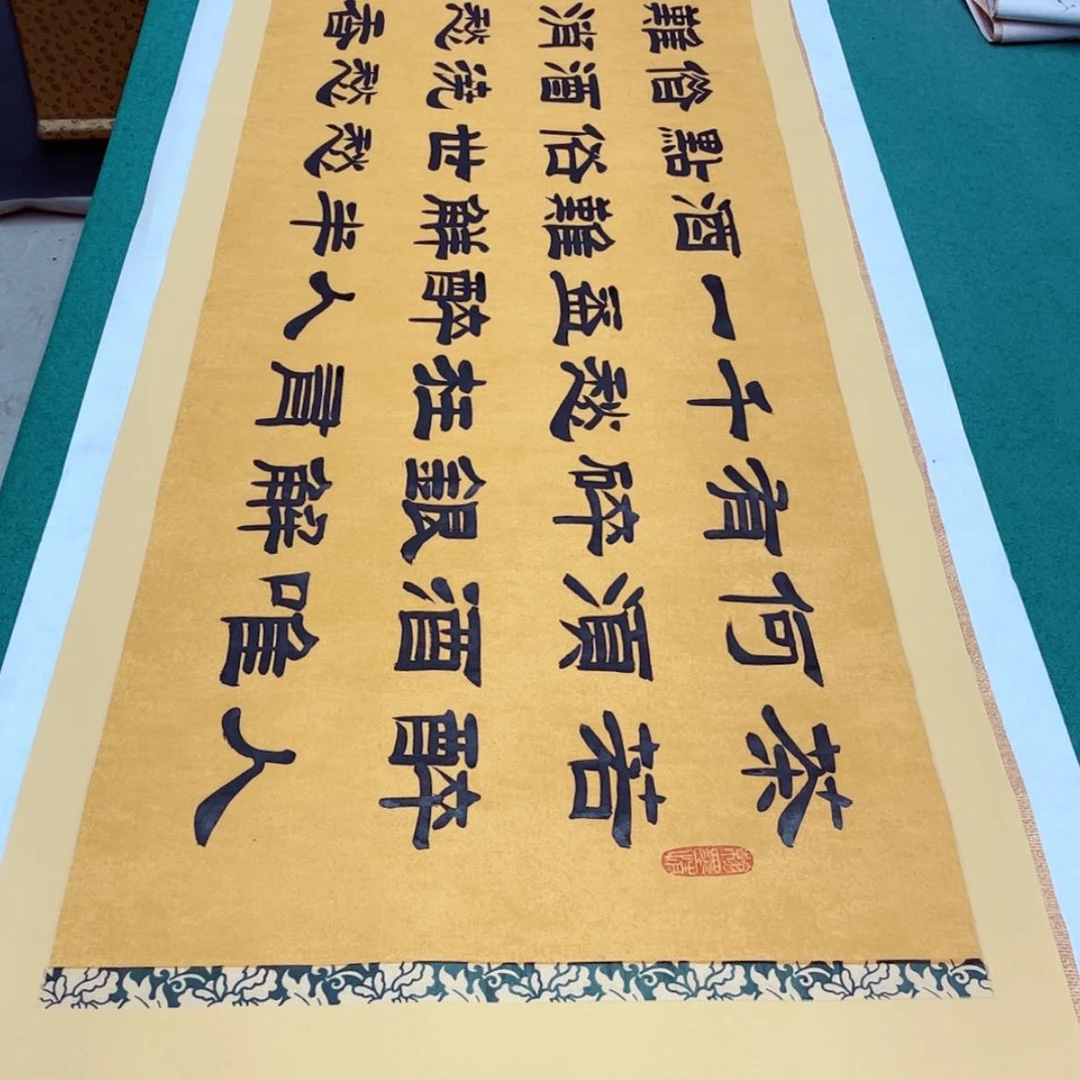 茶若醉人
何須酒唯
有碎銀解
千愁枉買
一盃醉人
酒難解半
點俗世愁
俗酒澆愁
難消愁香